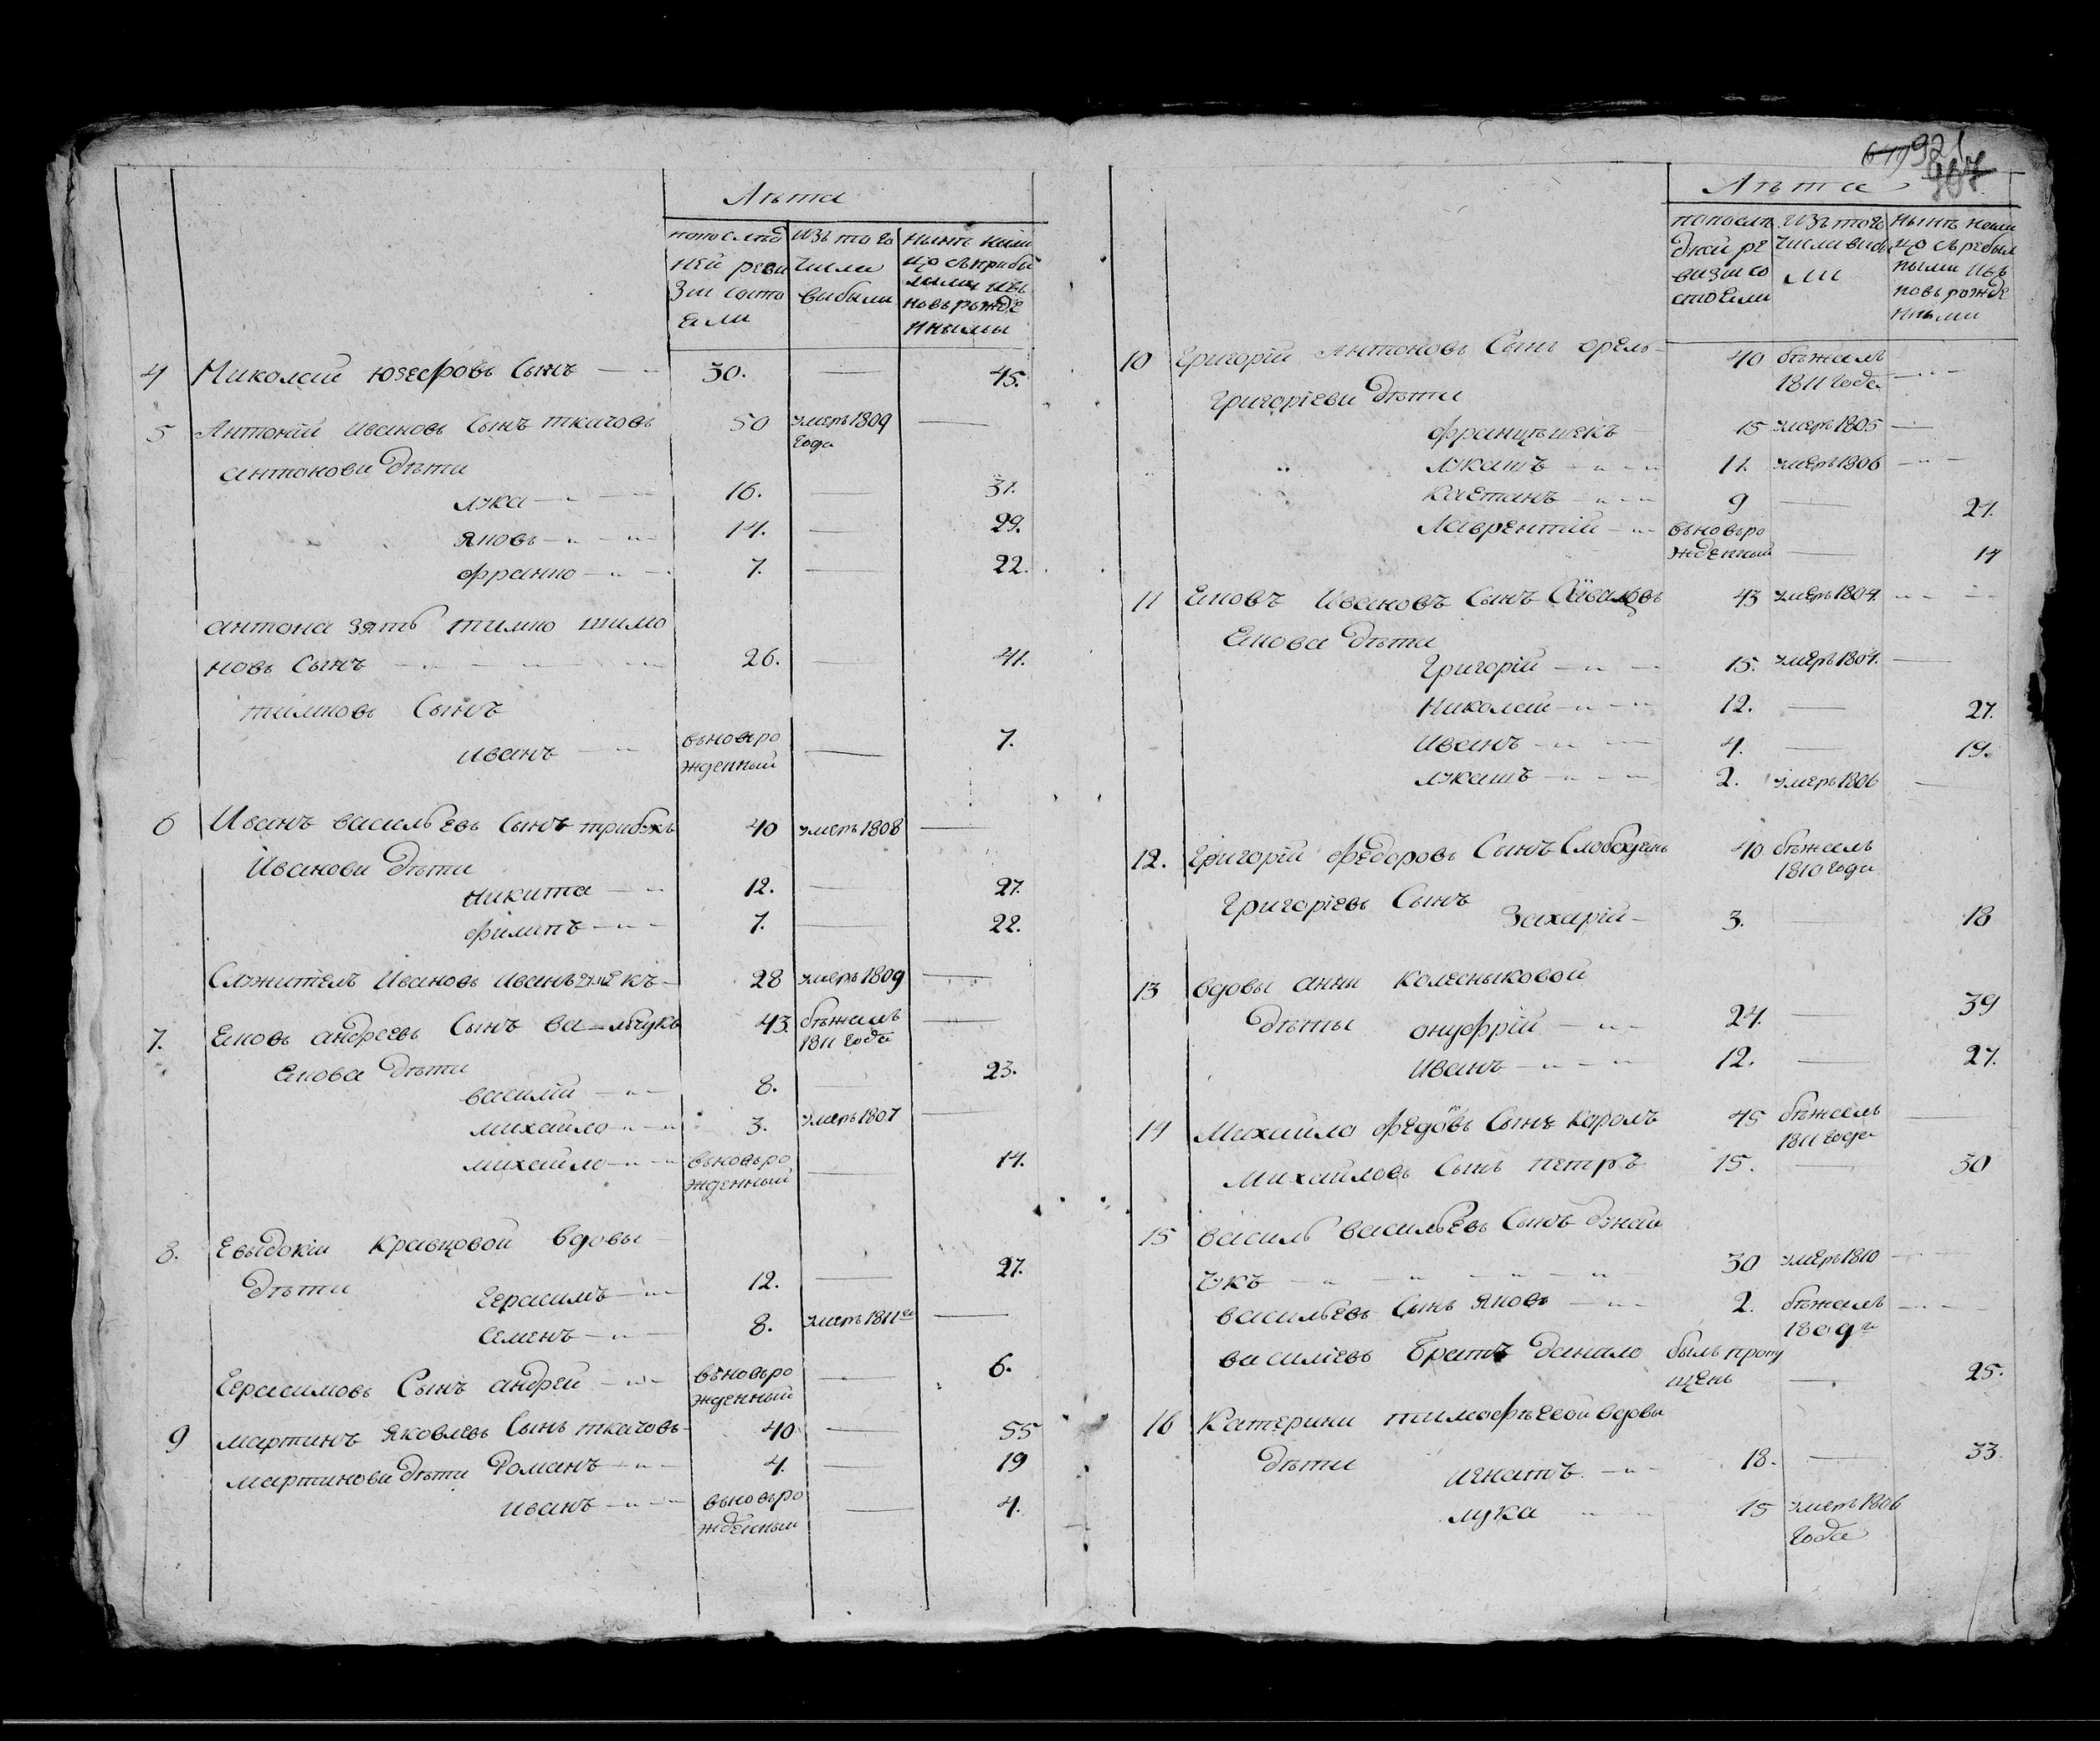 Лѣта
попослѣд изъ того нынѣ нали
ней реви числа цо съ прибы
зіи состо выбыли лими и въ
яли новь рожде
нными
4 Николай Юзефовъ Сынъ 30. — 45.
5 Антоній Ивановъ Сынъ ткачовъ 50 умеръ 1809 —
года
антонови дѣти
лука 16. — 31.
яковъ 14. — 29.
франко 7. — 22.
антона зять тимко шимо
новъ Сынъ 26. — 41.
тимковъ Сынъ
иванъ въновьро — 7.
жденный
6 Иванъ васильевъ Сынъ 40 умеръ 1808 —
Иванови дѣти
никита 12. — 27.
филипъ 7. — 22.
Служитель Ивановъ 28 умеръ 1809 —
7. Яковъ андреевъ Сынъ 43. бѣжалъ —
1811 года
Якова дѣти
василій 8. — 23.
михайло 3. умеръ 1807 —
михайло въновьро — 14.
жденный
8. Евьдокіи Кравцовой вдовы
дѣти Герасимъ 12. — 27.
семенъ 8. умеръ 1811 —
Герасимовъ Сынъ андрей въновьро — 6.
жденный
9 мартинъ Яковлевъ Сынъ ткачовъ 40 — 55
мартинови дѣти Романъ 4. — 19
иванъ въновьро — 4.
жденный
921
Лѣта
попослѣ изъ того нынѣ нали
дней ре числа выбы цо съ
визіи со ли ными и въ
стояли новь рожде
нными
10 Григорій Антоновъ Сынъ 40 бѣжалъ
1811 года —
Григоріеви дѣти
францѣшекъ 15 умеръ 1805 —
лукашъ 11. умеръ 1806 —
каетанъ 9 — 24.
Лаврентій въновьро
жденный — 14
11 Яковъ Ивановъ Сынъ 43 умеръ 1804.
Якова дѣти
Григорій 15. умеръ 1804. —
Николай 12. — 27.
Иванъ 4. — 19.
лукашъ 2. умеръ 1806 —
12. Григорій федоровъ Сынъ 40 бѣжалъ
1810 года
Григоріевъ Сынъ
Захарій 3. — 18
13 вдовы анни колесныковой
дѣты онуфрій 24. — 39
Иванъ 12. — 27.
14 Михайла Сынъ Король 45 бѣжалъ —
1811 года
Михайловъ Сынъ петръ 15. — 30
15 василь васильевъ Сынъ
чукъ 30 умеръ 1810 —
васильевъ Сынъ яковъ 2. бѣжалъ —
1809
василіевъ Братъ данило былъ пропу
щенъ — 25.
16 Катерини тимофѣевой вдовы
дѣти игнатъ 18. — 33.
лука 15 умеръ 1806
года